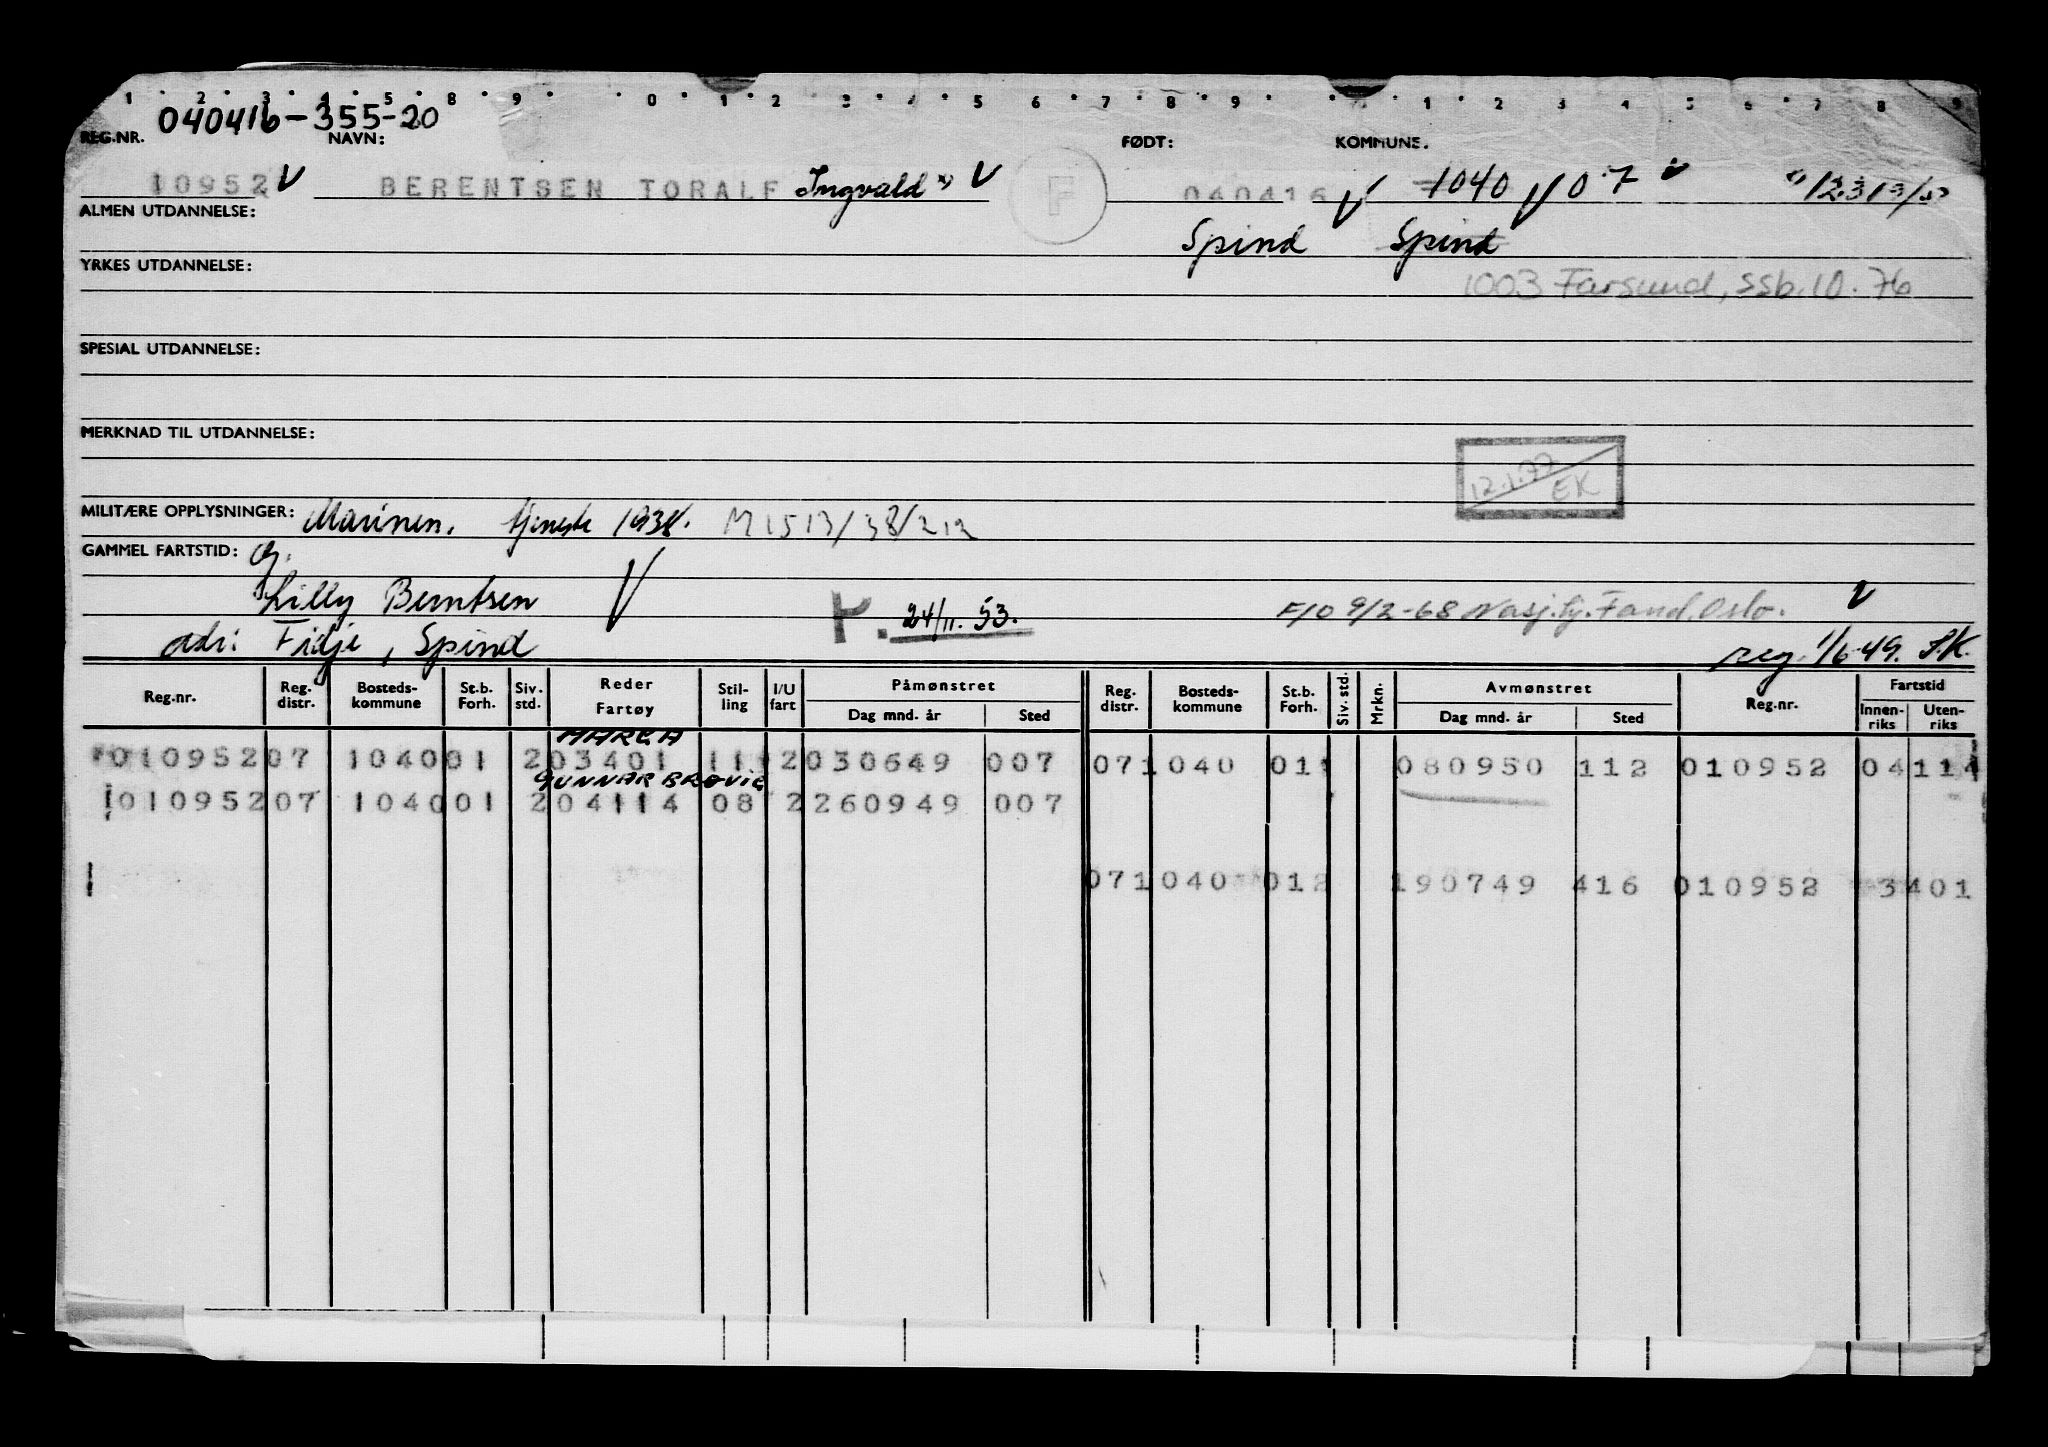 1 2 3 4 5 8 9 0 1 2 3 4 5 6 7 8 9 1 2 3 4 5 6 7 8 9
040416-355-20
REG.NR. NAVN: FØDT: KOMMUNE.
10952 V BERENTSEN TORALF Ingvald x) V F 040416 V 1040 V 07 V
ALMEN UTDANNELSE:
Spind Spind
YRKES UTDANNELSE:
1003 Farsund, ssb. 10.76
SPESIAL UTDANNELSE:
MERKNAD TIL UTDANNELSE:
12.1.77
EK
MILITÆRE OPPLYSNINGER: Marinen. tjeneste 1938. M1513/38/212
GAMMEL FARTSTID: G.
Lilly Berntsen V
24/11.53. F10 9/2-68 Nasj.by.Fand.Oslo. V
adr: Fidje, Spind
reg. 1/6-49. S.K.
Reg.nr. Reg. distr. Bosteds-kommune St.b. Forh. Siv. std. Reder Fartøy Stil-ling I/U fart Påmønstret Dag mnd. år Sted Reg. distr. Bosteds-kommune St.b. Forh. Siv. std. Mrkn. Avmønstret Dag mnd. år Sted Reg.nr. Fartstid Innen-riks Uten-riks
010952 07 1040 01 2 03401 11 2 030649 007 07 1040 01 080950 112 010952 04114
GUNNAR BROVIG
010952 07 1040 01 2 04114 08 2 260949 007
07 1040 012 190749 416 010952 3401